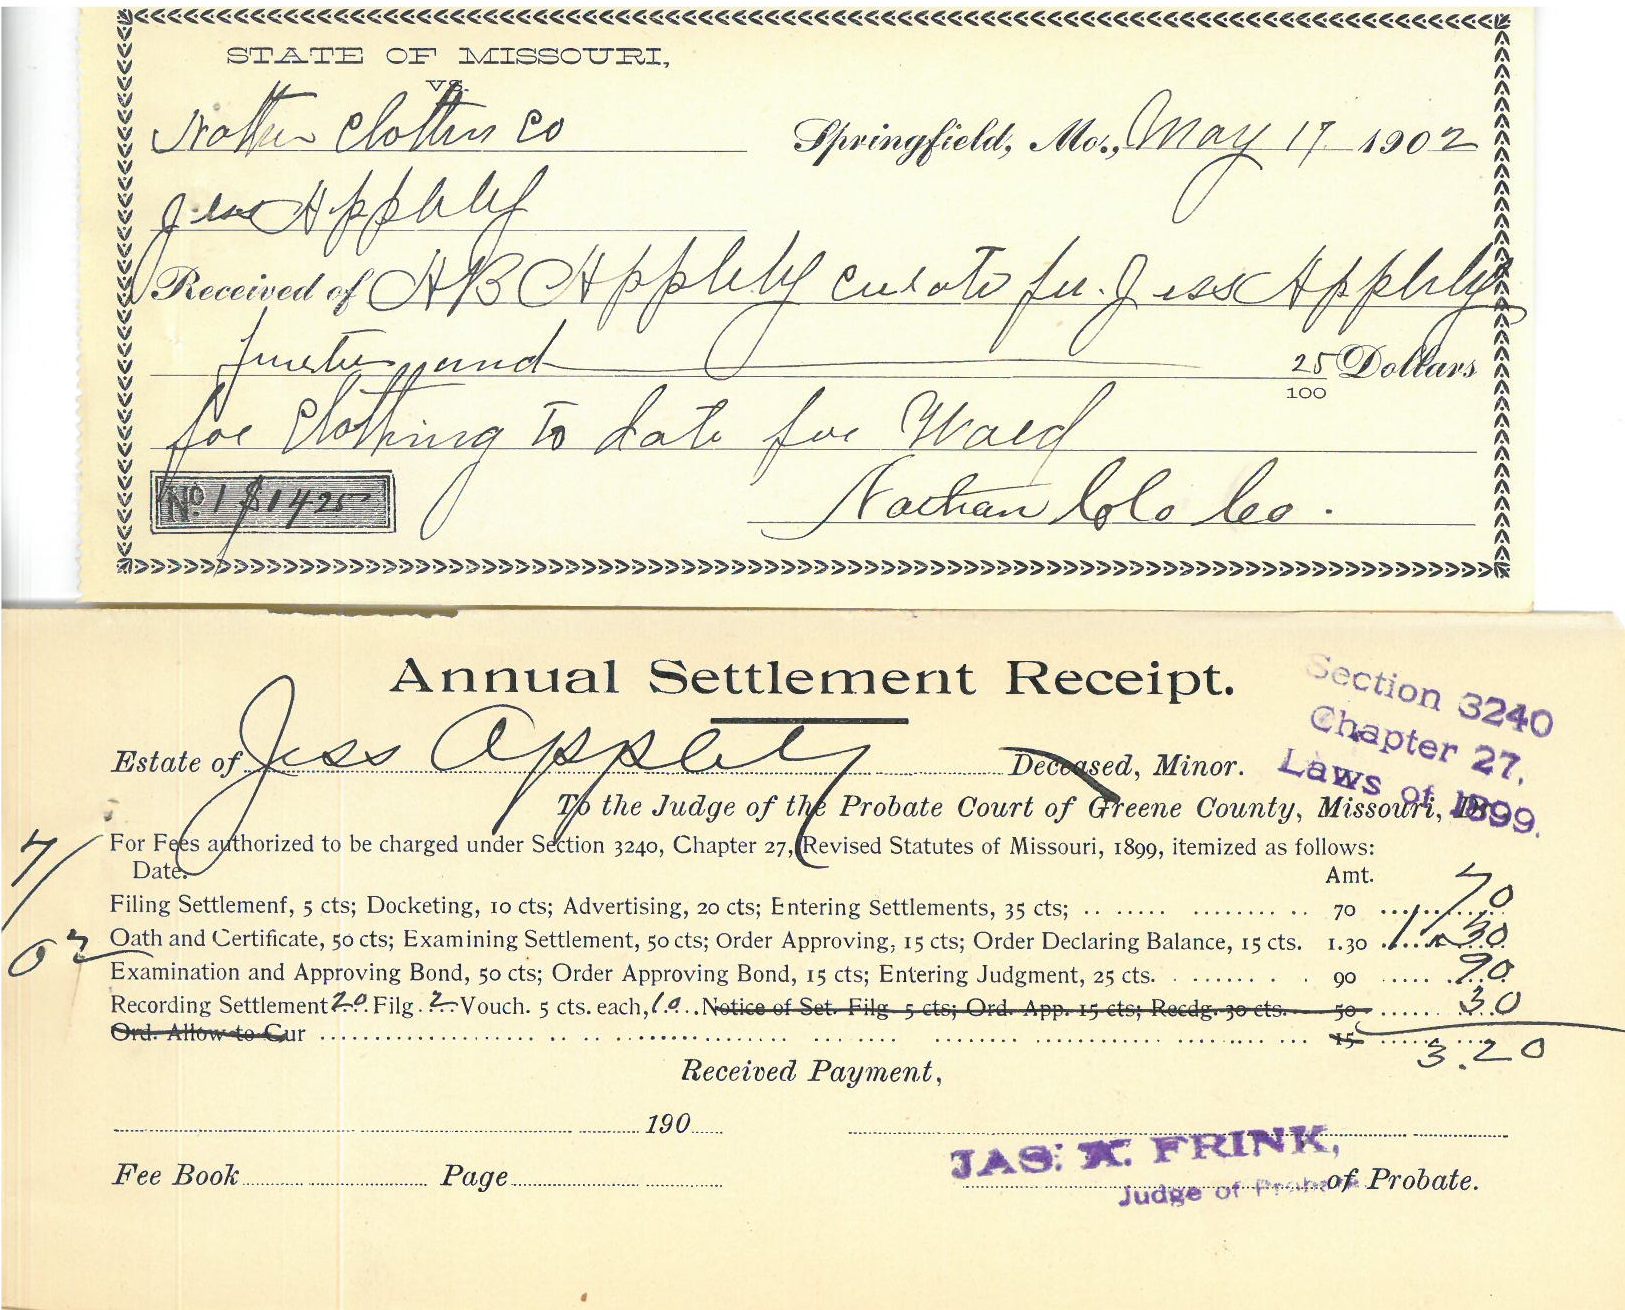 STATE OF MISSOURI,
VS.
Nathan Clothin Co
Springfield, Mo., May 17 1902
Jess Appleby
Received of A B Appleby curato for Jess Appleby
and 25/100 Dollars
for Clothing to date for Ward
No. 1 $1425
Nathan Clo Co.
Annual Settlement Receipt.
Section 3240
Chapter 27,
Laws of 1899.
Estate of Jess Appleby Deceased, Minor.
To the Judge of the Probate Court of Greene County, Missouri, Dr.
For Fees authorized to be charged under Section 3240, Chapter 27, Revised Statutes of Missouri, 1899, itemized as follows:
Date. Amt.
7/
Filing Settlement, 5 cts; Docketing, 10 cts; Advertising, 20 cts; Entering Settlements, 35 cts; 70 70
02 Oath and Certificate, 50 cts; Examining Settlement, 50 cts; Order Approving, 15 cts; Order Declaring Balance, 15 cts. 1.30 1.30
Examination and Approving Bond, 50 cts; Order Approving Bond, 15 cts; Entering Judgment, 25 cts. 90 90
Recording Settlement 20 Filg. 2 Vouch. 5 cts. each, 10 Notice of Set. Filg 5 cts; Ord. App. 15 cts; Recdg. 30 cts. 50 30
Ord. Allow to Cur 15 3.20
Received Payment,
190
JAS. FRINK,
Judge of Probate
Fee Book Page of Probate.